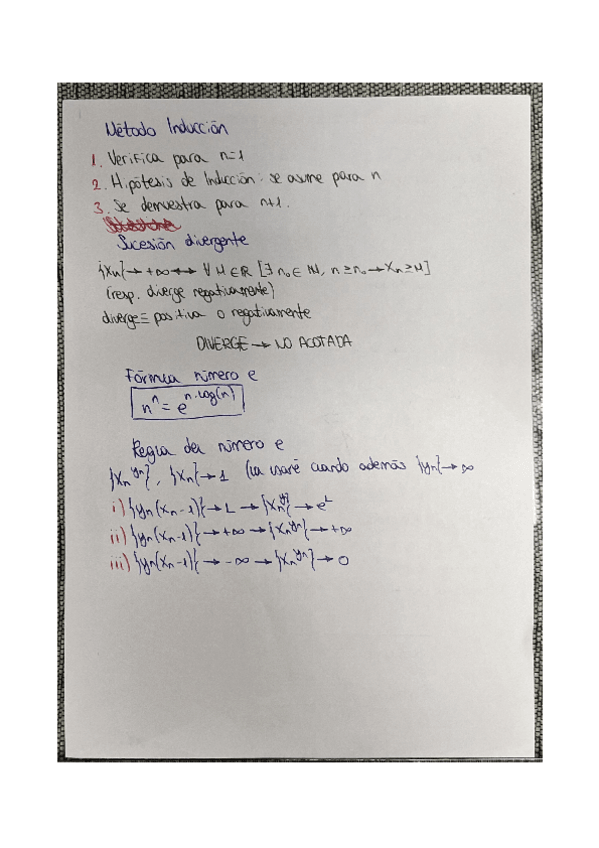 Método Inducción
1. Verifica para n=1
2. Hipótesis de Inducción: se asume para n
3. Se demuestra para n+1.
Sucesión divergente
{xn}→+∞ ↔ ∀M∈ℝ [∃n₀∈ℕ, n≥n₀→xn≥M]
(resp. diverge negativamente)
diverge≡ positiva o negativamente
DIVERGE → NO ACOTADA
Fórmula número e
nⁿ = e^(n·log(n))
Regla del número e
{xn^yn}, {xn}→1 (la usaré cuando además {yn}→∞
i) {yn(xn-1)}→L→{xn^yn}→e^L
ii) {yn(xn-1)}→+∞→{xn^yn}→+∞
iii) {yn(xn-1)}→-∞→{xn^yn}→0